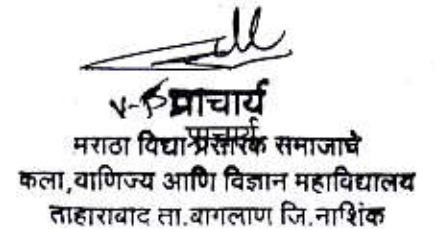 प्राचार्य
प्राचार्य
मराठा विद्या प्रसारक समाजाचे
कला,वाणिज्य आणि विज्ञान महाविद्यालय
ताहाराबाद ता.बागलाण जि.नाशिक